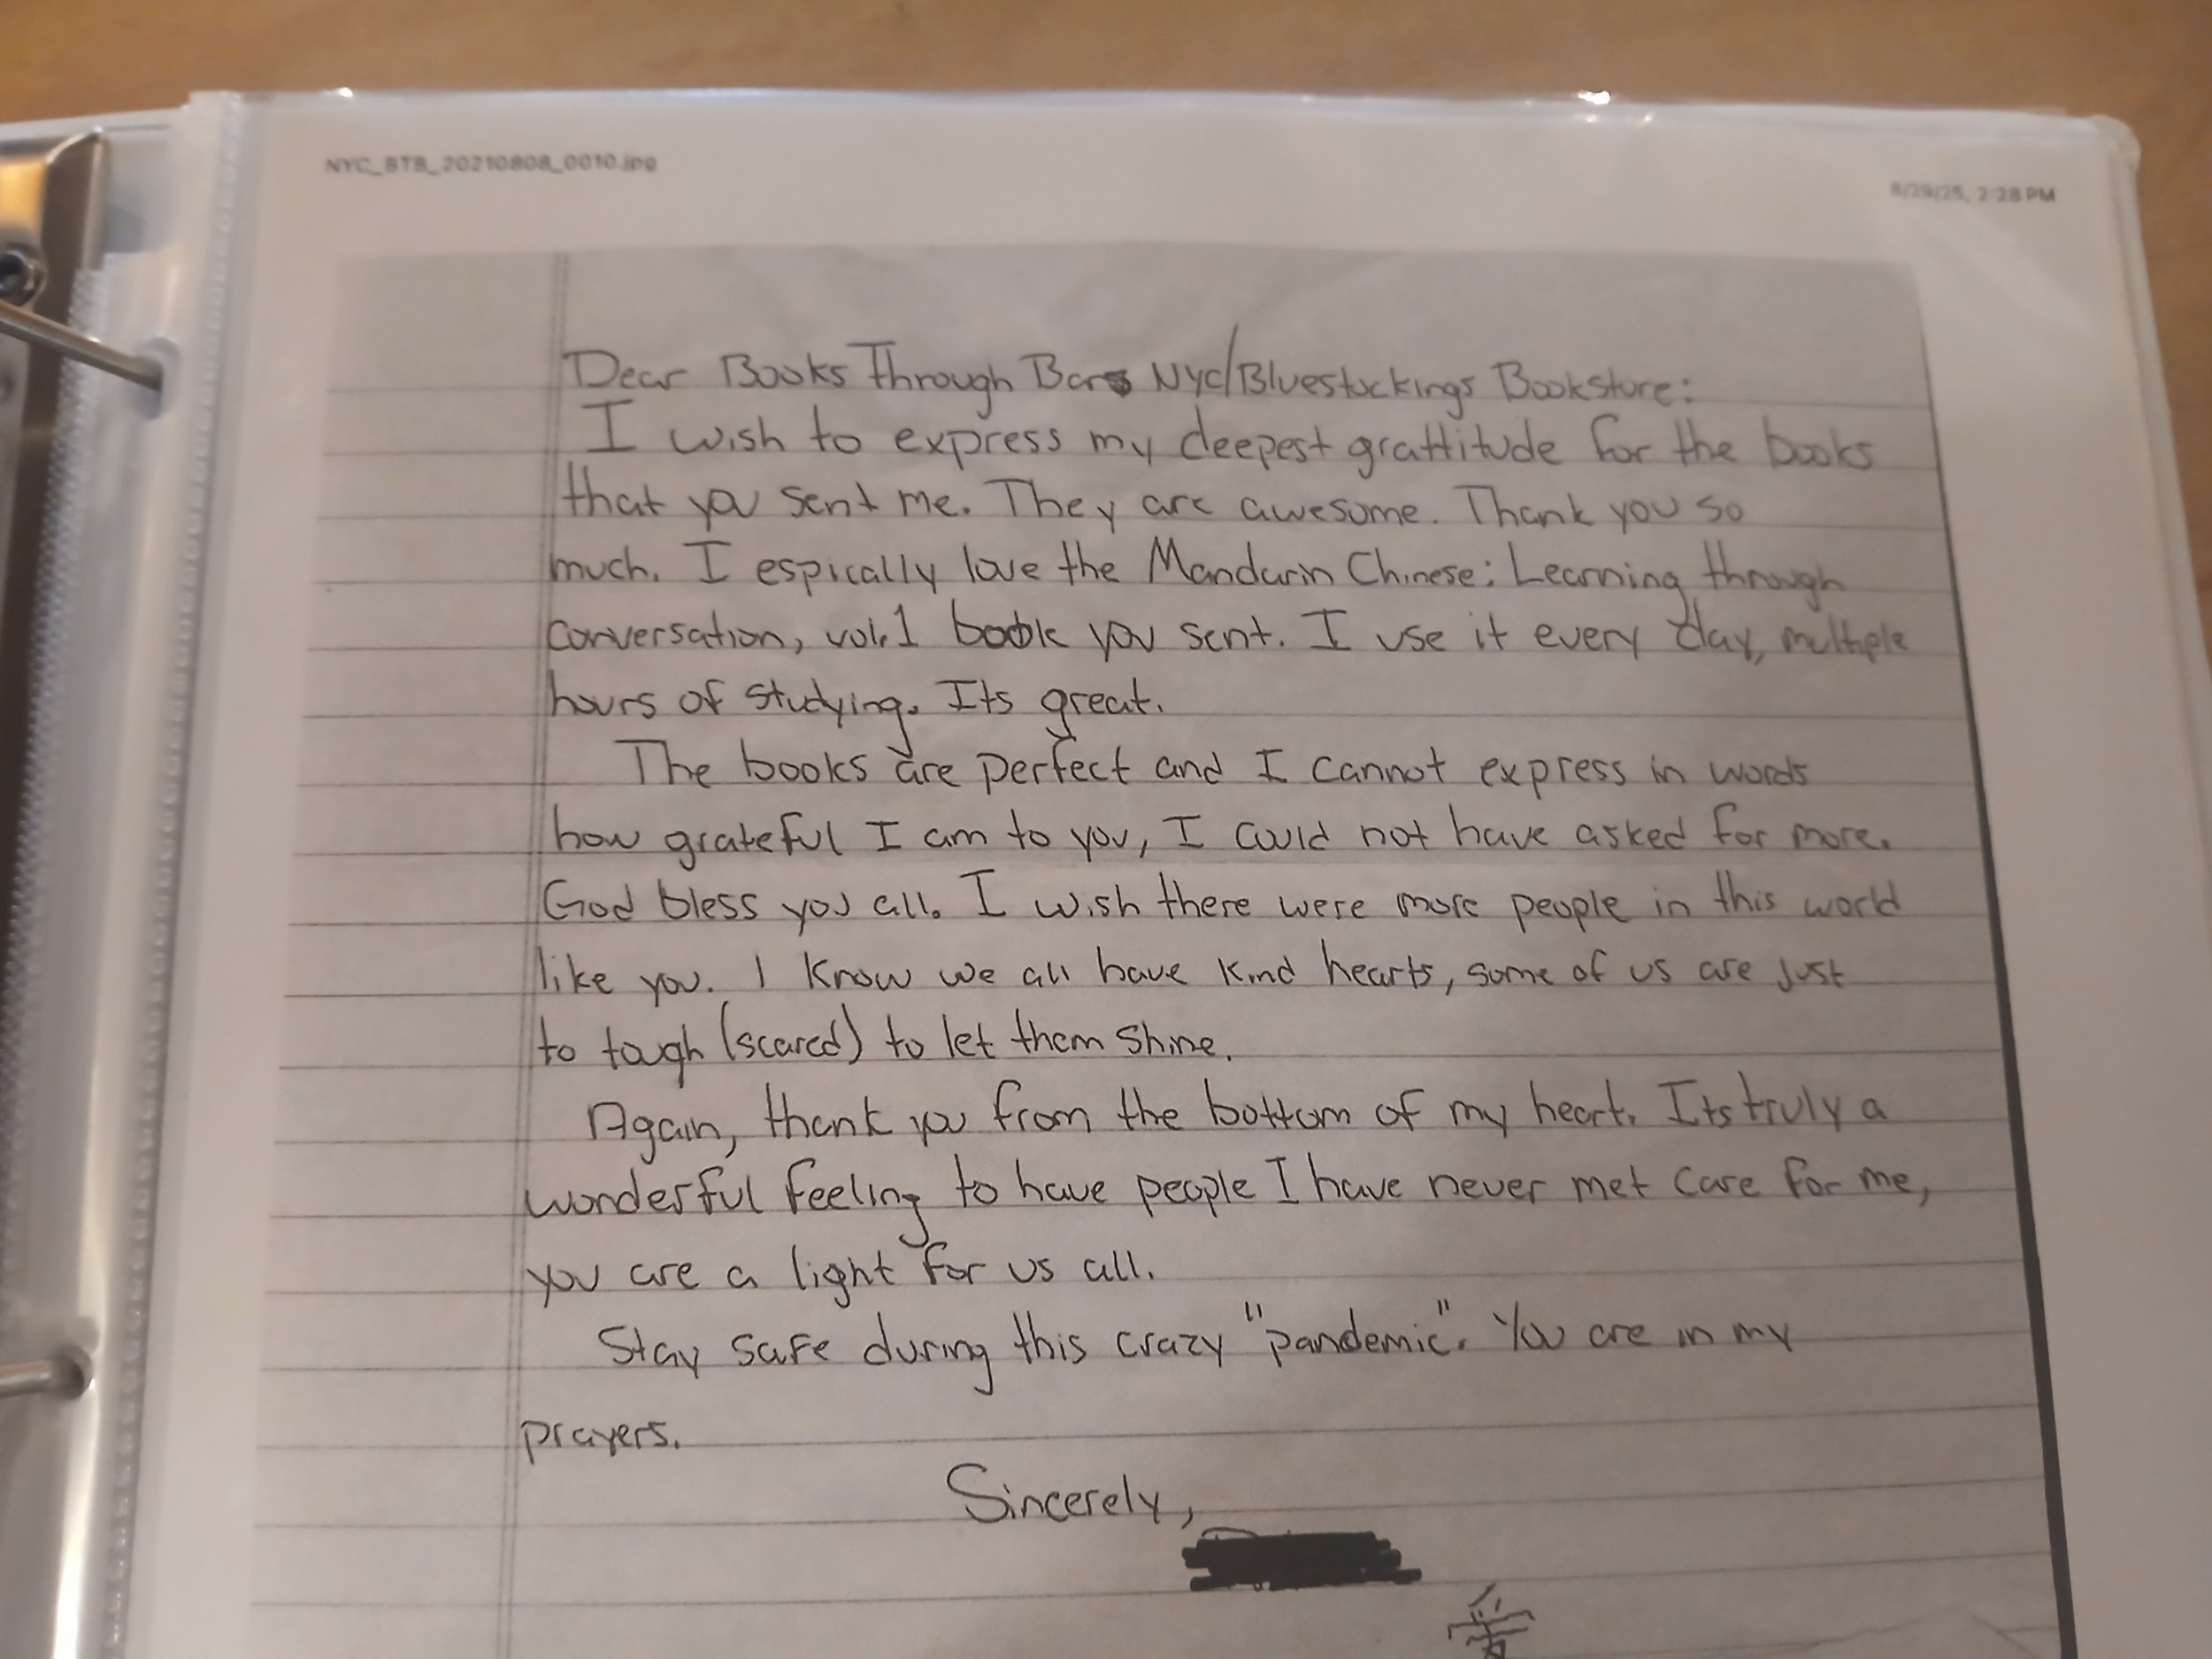 NYC_BTB_20210808_0010.jpg
8/29/25, 2:28 PM
Dear Books Through Bars NYC/Bluestockings Bookstore:
I wish to express my deepest grattitude for the books
that you sent me. They are awesome. Thank you so
much. I espically love the Mandarin Chinese: Learning through
conversation, vol.1 book you sent. I use it every day, multiple
hours of studying. Its great.
The books are perfect and I cannot express in words
how grateful I am to you, I could not have asked for more.
God bless you all. I wish there were more people in this world
like you. I know we all have kind hearts, some of us are just
to tough (scared) to let them shine.
Again, thank you from the bottom of my heart. Its truly a
wonderful feeling to have people I have never met care for me,
you are a light for us all.
Stay safe during this crazy "pandemic". You are in my
prayers.
Sincerely,